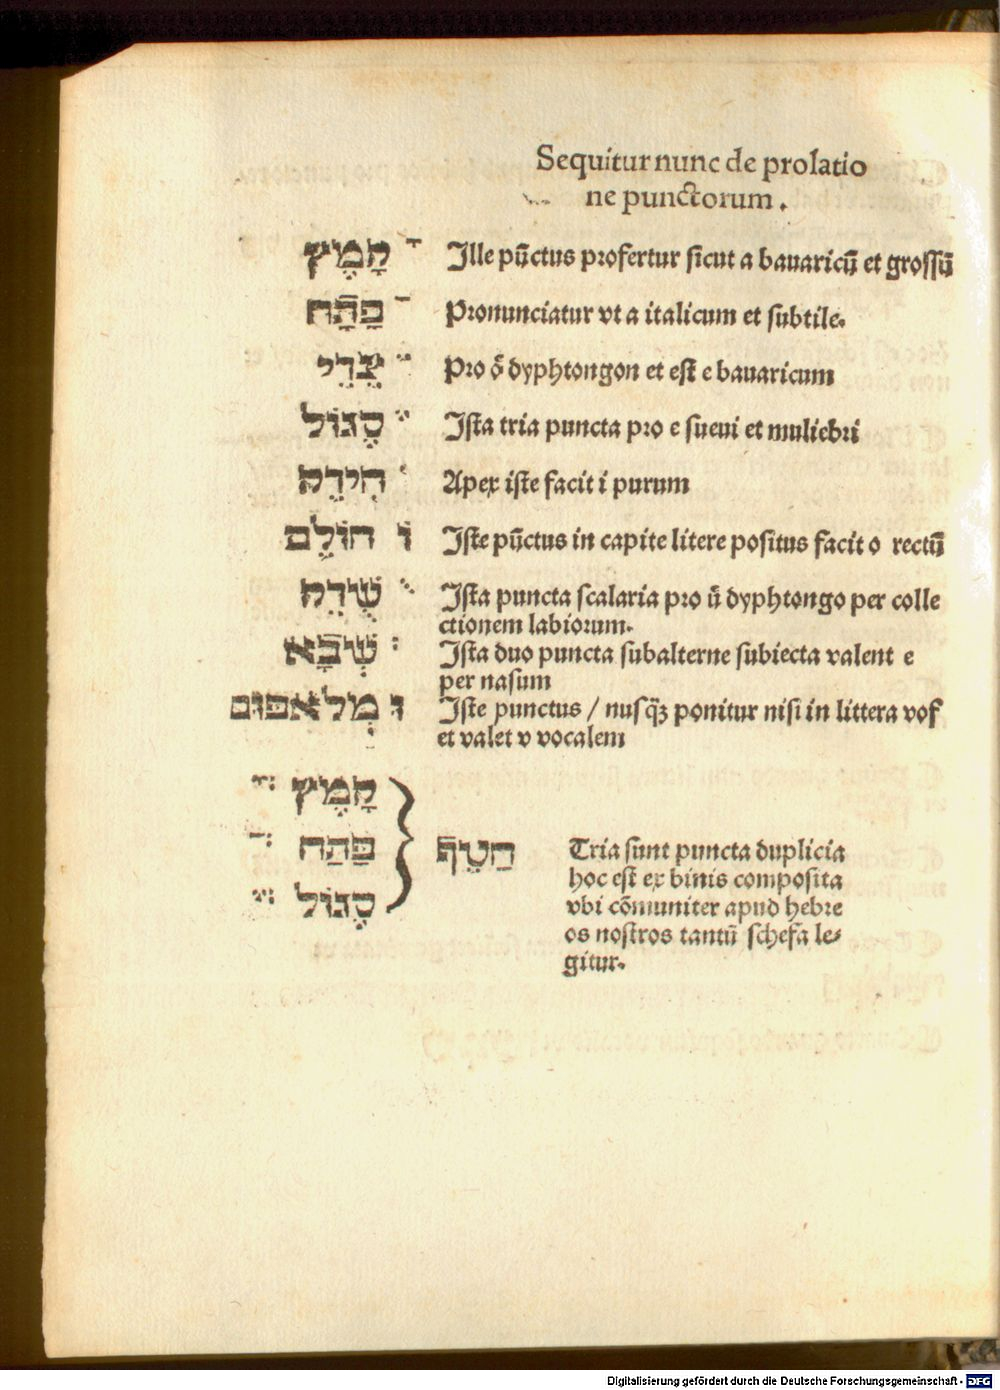 Sequitur nunc de prolatio
ne punctorum.
קָמֶץ Ille pūctus profertur sicut a bavaricū et grossū
פַּתָּח Pronunciatur vt a italicum et subtile.
צֵרֵי Pro ō dyphtongon et est e bavaricum
סֶגּוֹל Ista tria puncta pro e suevi et muliebri
חִירֵק Apex iste facit i purum
וֹ חוֹלֵם Iste pūctus in capite litere positus facit o rectū
שֻׁרֵק Ista puncta scalaria pro ū dyphtongo per colle
ctionem labiorum.
שְׁבָא Ista duo puncta subalterne subiecta valent e
per nasum
וּ מְלאפוּם Iste punctus / nusqꝫ ponitur nisi in littera vof
et valet v vocalem
קָמֶץ
פַּתַח
סֶגּוֹל
חַטֶף
Tria sunt puncta duplicia
hoc est ex binis composita
vbi cōmuniter apud hebre
os nostros tantū schefa le⸗
gitur.
Digitalisierung gefördert durch die Deutsche Forschungsgemeinschaft - DFG